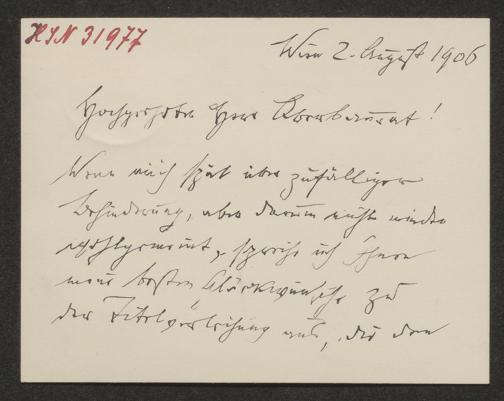 HIN 31977
Wien 2. August 1906
Hochgeehrter Herr Oberbaurat!
Wenn auch spät über zufälliger
Behinderung, aber darum nicht minder
wohlgemeint, spreche ich Ihnen
meine besten Glückwünsche zu
der Titelverleihung aus, die den